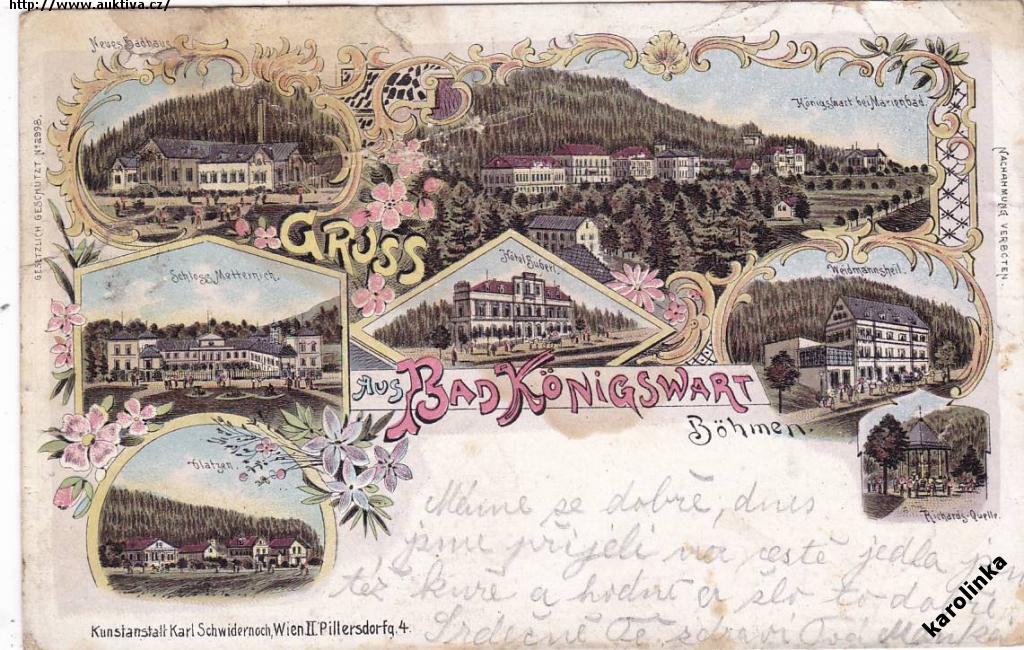 http://www.auktiva.cz/
Neues Badhaus.
Königswart bei Marienbad.
GESETZLICH GESCHÜTZT No 2998.
NACHAHMUNG VERBOTEN.
GRUSS
Schloss Metternich.
Hôtel Buberl.
Weidmannsheil.
AUS BAD KÖNIGSWART
Böhmen.
Glatzen.
Richards-Quelle.
Máme se dobře, dnes
jsme přijeli na cestě jedla
též kuře a hodně šlo to dobře
Srdečně Tě zdraví Tvá
Kunstanstalt Karl Schwidernoch, Wien II. Pillersdorfg. 4.
karolinka